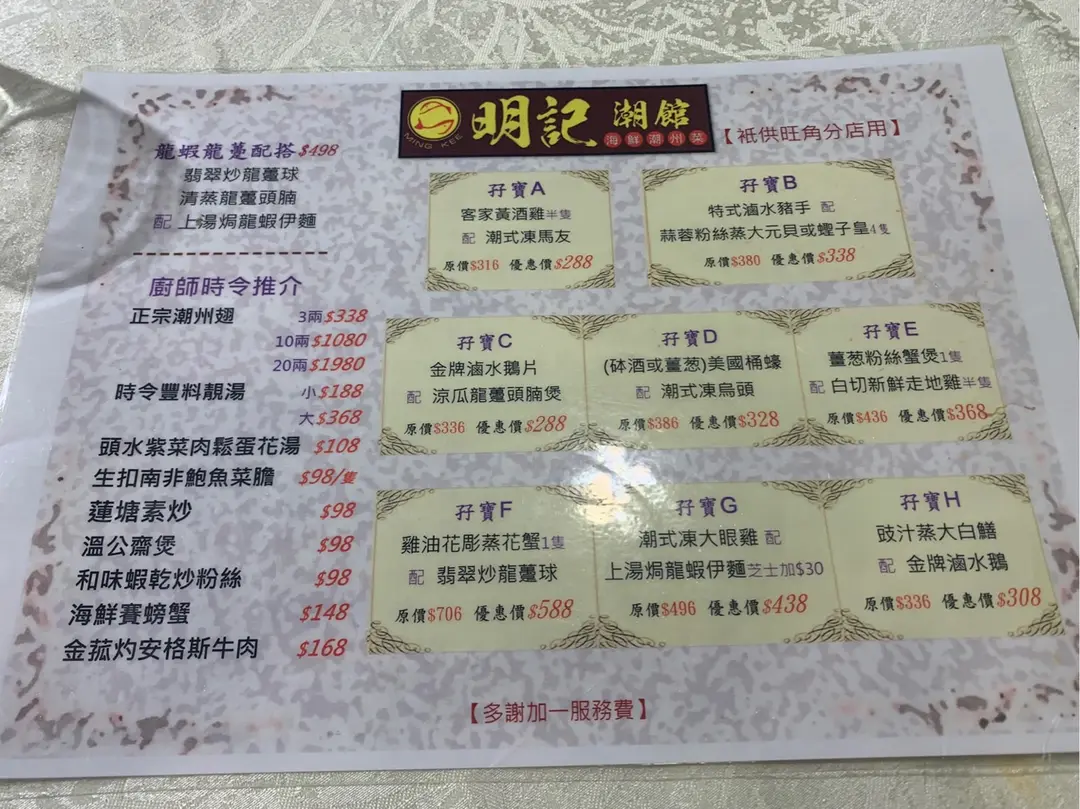 MING KEE
明記 潮館
海鮮潮州菜
【祇供旺角分店用】
龍蝦龍躉配搭$498
翡翠炒龍躉球
清蒸龍躉頭腩
配 上湯焗龍蝦伊麵
廚師時令推介
正宗潮州翅 3兩$338
10兩$1080
20兩$1980
時令豐料靚湯 小$188
大$368
頭水紫菜肉鬆蛋花湯 $108
生扣南非鮑魚菜膽 $98/隻
蓮塘素炒 $98
溫公齋煲 $98
和味蝦乾炒粉絲 $98
海鮮賽螃蟹 $148
金菰灼安格斯牛肉 $168
孖寶A
客家黃酒雞半隻
配 潮式凍馬友
原價$316 優惠價$288
孖寶B
特式滷水豬手 配
蒜蓉粉絲蒸大元貝或蟶子皇4隻
原價$380 優惠價$338
孖寶C
金牌滷水鵝片
配 涼瓜龍躉頭腩煲
原價$336 優惠價$288
孖寶D
(砵酒或薑葱)美國桶蠔
配 潮式凍烏頭
原價$386 優惠價$328
孖寶E
薑葱粉絲蟹煲1隻
配 白切新鮮走地雞半隻
原價$436 優惠價$368
孖寶F
雞油花彫蒸花蟹1隻
配 翡翠炒龍躉球
原價$706 優惠價$588
孖寶G
潮式凍大眼雞 配
上湯焗龍蝦伊麵芝士加$30
原價$496 優惠價$438
孖寶H
豉汁蒸大白鱔
配 金牌滷水鵝
原價$336 優惠價$308
【多謝加一服務費】